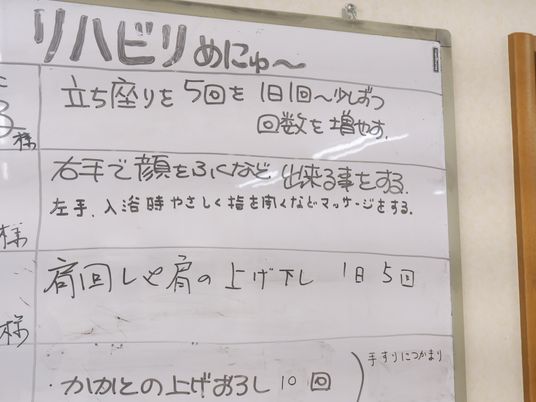 リハビリめにゅ〜
立ち座りを5回を1日1回〜少しずつ
回数を増やす.
様
右手で顔をふくなど出来る事をする.
左手.入浴時やさしく指を開くなどマッサージをする.
様
肩回しや肩の上げ下し 1日5回
様
・かかとの上げおろし10回
手すりにつかまり